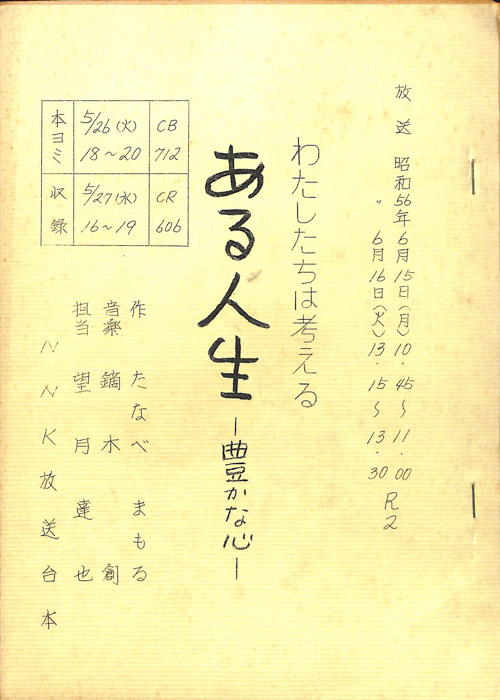 放送 昭和56年6月15日(月)10.45～11.00
〃 6月16日(火)13.15～13.30 R2
わたしたちは考える
ある人生
ー豊かな心ー
本ヨミ 5/26(火) 18～20 CB 712
収録 5/27(水) 16～19 CR 606
作 たなべ まもる
音楽 鏑木 創
担当 望月 達也
NNK放送台本